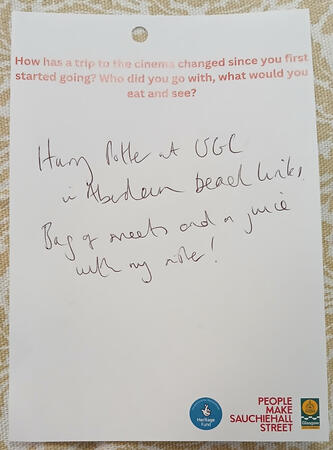 How has a trip to the cinema changed since you first
started going? Who did you go with, what would you
eat and see?
Harry Potter at UGC
in Aberdeen beach links.
Bag of sweets and a juice
with my
Heritage
Fund
PEOPLE
MAKE
SAUCHIEHALL
STREET
Glasgow